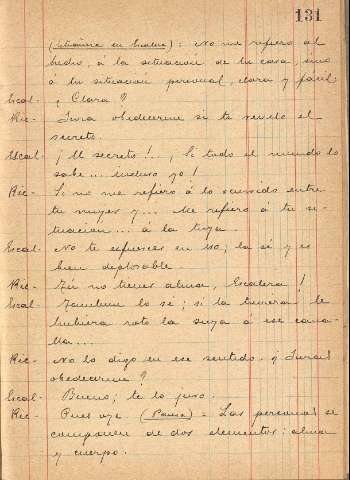 131
(                en                ): No me refiero al
hecho, á la situación de tu casa, sino
á tu situación personal, clara y fácil.
Escal- ¿Clara?
Ric- Jura obedecerme si te revelo el
secreto.
Escal- ¡El secreto!.. ¡Si todo el mundo lo
sabe... incluso yo!
Ric- Si no me refiero á lo ocurrido entre
tu mujer y... Me refiero á tu si-
tuacion.... á la tuya.
Escal. No te esfuerces en eso; la sé y es
bien deplorable
Ric- Tú no tienes alma, Escalera!
Escal- Tambien lo sé; si la tuviera le
hubiera roto la suya á ese cana-
lla....
Ric- No lo digo en ese sentido. ¿Juras
obedecerme?
Escal- Bueno; te lo juro.
Ric- Pues oye. (Pausa)= Las personas se
componen de dos elementos: alma
y cuerpo.